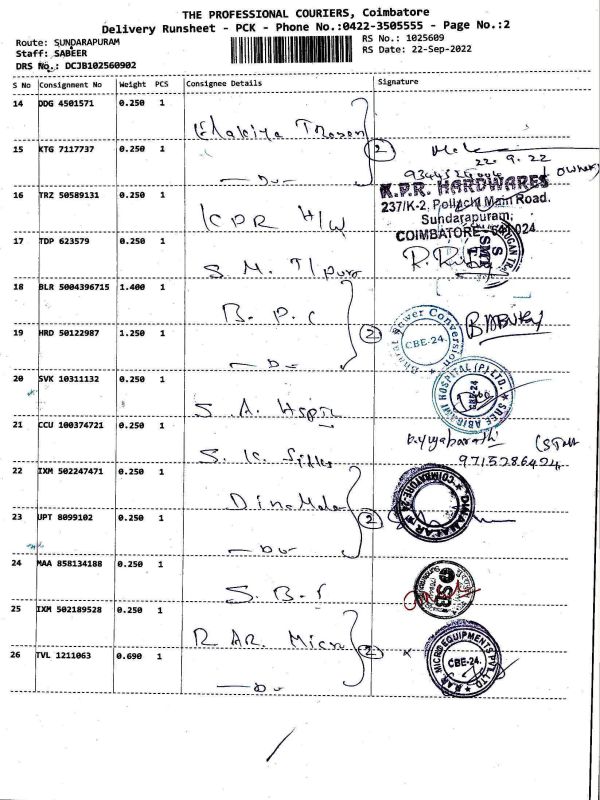 THE PROFESSIONAL COURIERS, Coimbatore
Delivery Runsheet - PCK - Phone No.:0422-3505555 - Page No.:2
Route: SUNDARAPURAM
Staff: SABEER
DRS No.: DCJB102560902
RS No.: 1025609
RS Date: 22-Sep-2022
S No Consignment No Weight PCS Consignee Details Signature
14 DDG 4501571 0.250 1
15 KTG 7117737 0.250 1 2
22.9.22
K.P.R. HARDWARES
237/K-2, Pollachi Main Road,
Sundarapuram,
COIMBATORE - 641 024
16 TRZ 50589131 0.250 1 KPR H/W
17 TDP 623579 0.250 1 S. M. T/pura
18 BLR 5004396715 1.400 1 B. P. C
19 HRD 50122987 1.250 1 2
Bharat Power Conversion
CBE-24.
BABU
20 SVK 10311132 0.250 1 S. A. Hspir
SREE ABIRAMI HOSPITAL (P) LTD.
CBE-24
21 CCU 100374721 0.250 1 S. K.
9715286424
22 IXM 502247471 0.250 1 Dinamalar
23 UPT 8099102 0.250 1 2
DINAMALAR
COIMBATORE-24
24 MAA 858134188 0.250 1 S. B. I
25 IXM 502189528 0.250 1 R AR. Micro
26 TVL 1211063 0.690 1 2
R.A.R. MICRO EQUIPMENTS PVT.LTD
CBE-24.